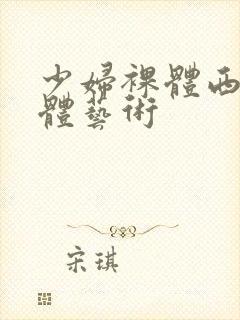 少婦裸體西
體藝術
宋琪